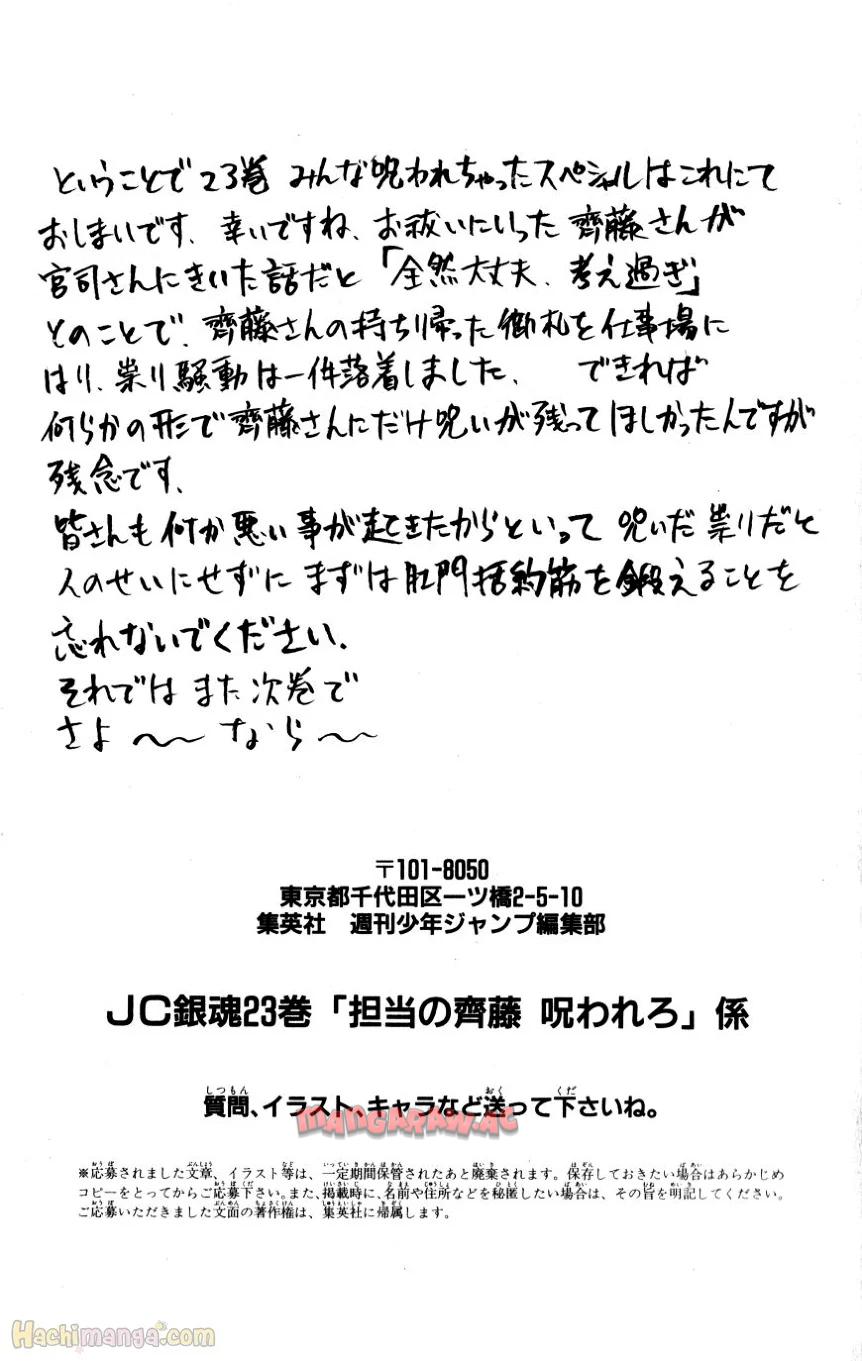 ということで23巻 みんな呪われちゃったスペシャルはこれにて
おしまいです。幸いですね、お祓いにいった齊藤さんが
宮司さんにきいた話だと「全然大丈夫、考え過ぎ」
とのことで、齊藤さんの持ち帰った御札を仕事場に
はり、祟り騒動は一件落着しました。 できれば
何らかの形で齊藤さんにだけ呪いが残ってほしかったんですが
残念です。
皆さんも何か悪い事が起きたからといって 呪いだ祟りだと
人のせいにせずに まずは肛門括約筋を鍛えることを
忘れないでください。
それでは また次巻で
さよ〜なら〜
〒101-8050
東京都千代田区一ツ橋2-5-10
集英社 週刊少年ジャンプ編集部
JC銀魂23巻「担当の齊藤 呪われろ」係
質問、イラスト、キャラなど送って下さいね。
mangaraw.ac
※応募されました文章、イラスト等は、一定期間保管されたあと廃棄されます。保存しておきたい場合はあらかじめ
コピーをとってからご応募下さい。また、掲載時に、名前や住所などを秘匿したい場合は、その旨を明記してください。
ご応募いただきました文面の著作権は、集英社に帰属します。
Hachimanga.com